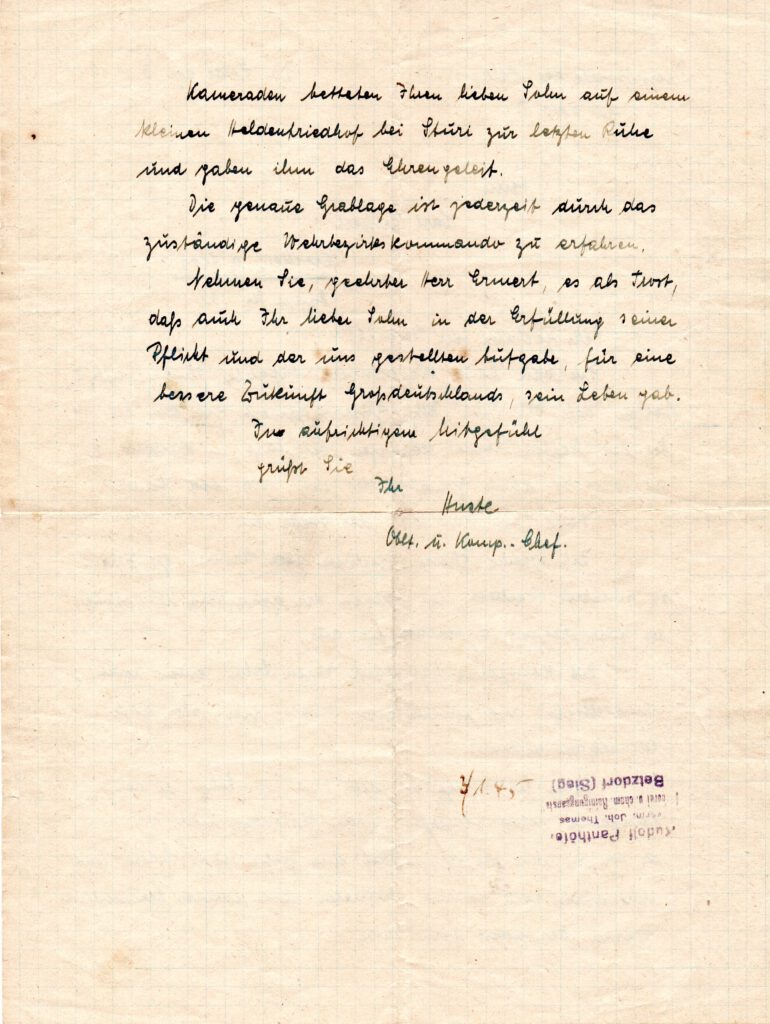 Kameraden betteten Ihren lieben Sohn auf einem
kleinen Heldenfriedhof bei Sturi zur letzten Ruhe
und gaben ihm das Ehrengeleit.
Die genaue Grablage ist jederzeit durch das
zuständige Wehrbezirkskommando zu erfahren.
Nehmen Sie, geehrter Herr Ermert, es als Trost,
daß auch Ihr lieber Sohn in der Erfüllung seiner
Pflicht und der uns gestellten Aufgabe, für eine
bessere Zukunft Großdeutschlands, sein Leben gab.
In aufrichtigem Mitgefühl
grüßt Sie
Ihr
Oblt. u. Komp.-Chef.
1.45
Rudolf Panthöfe
vorm. Joh. Thomas
u. chem. Reinigungsanst
Betzdorf (Sieg)